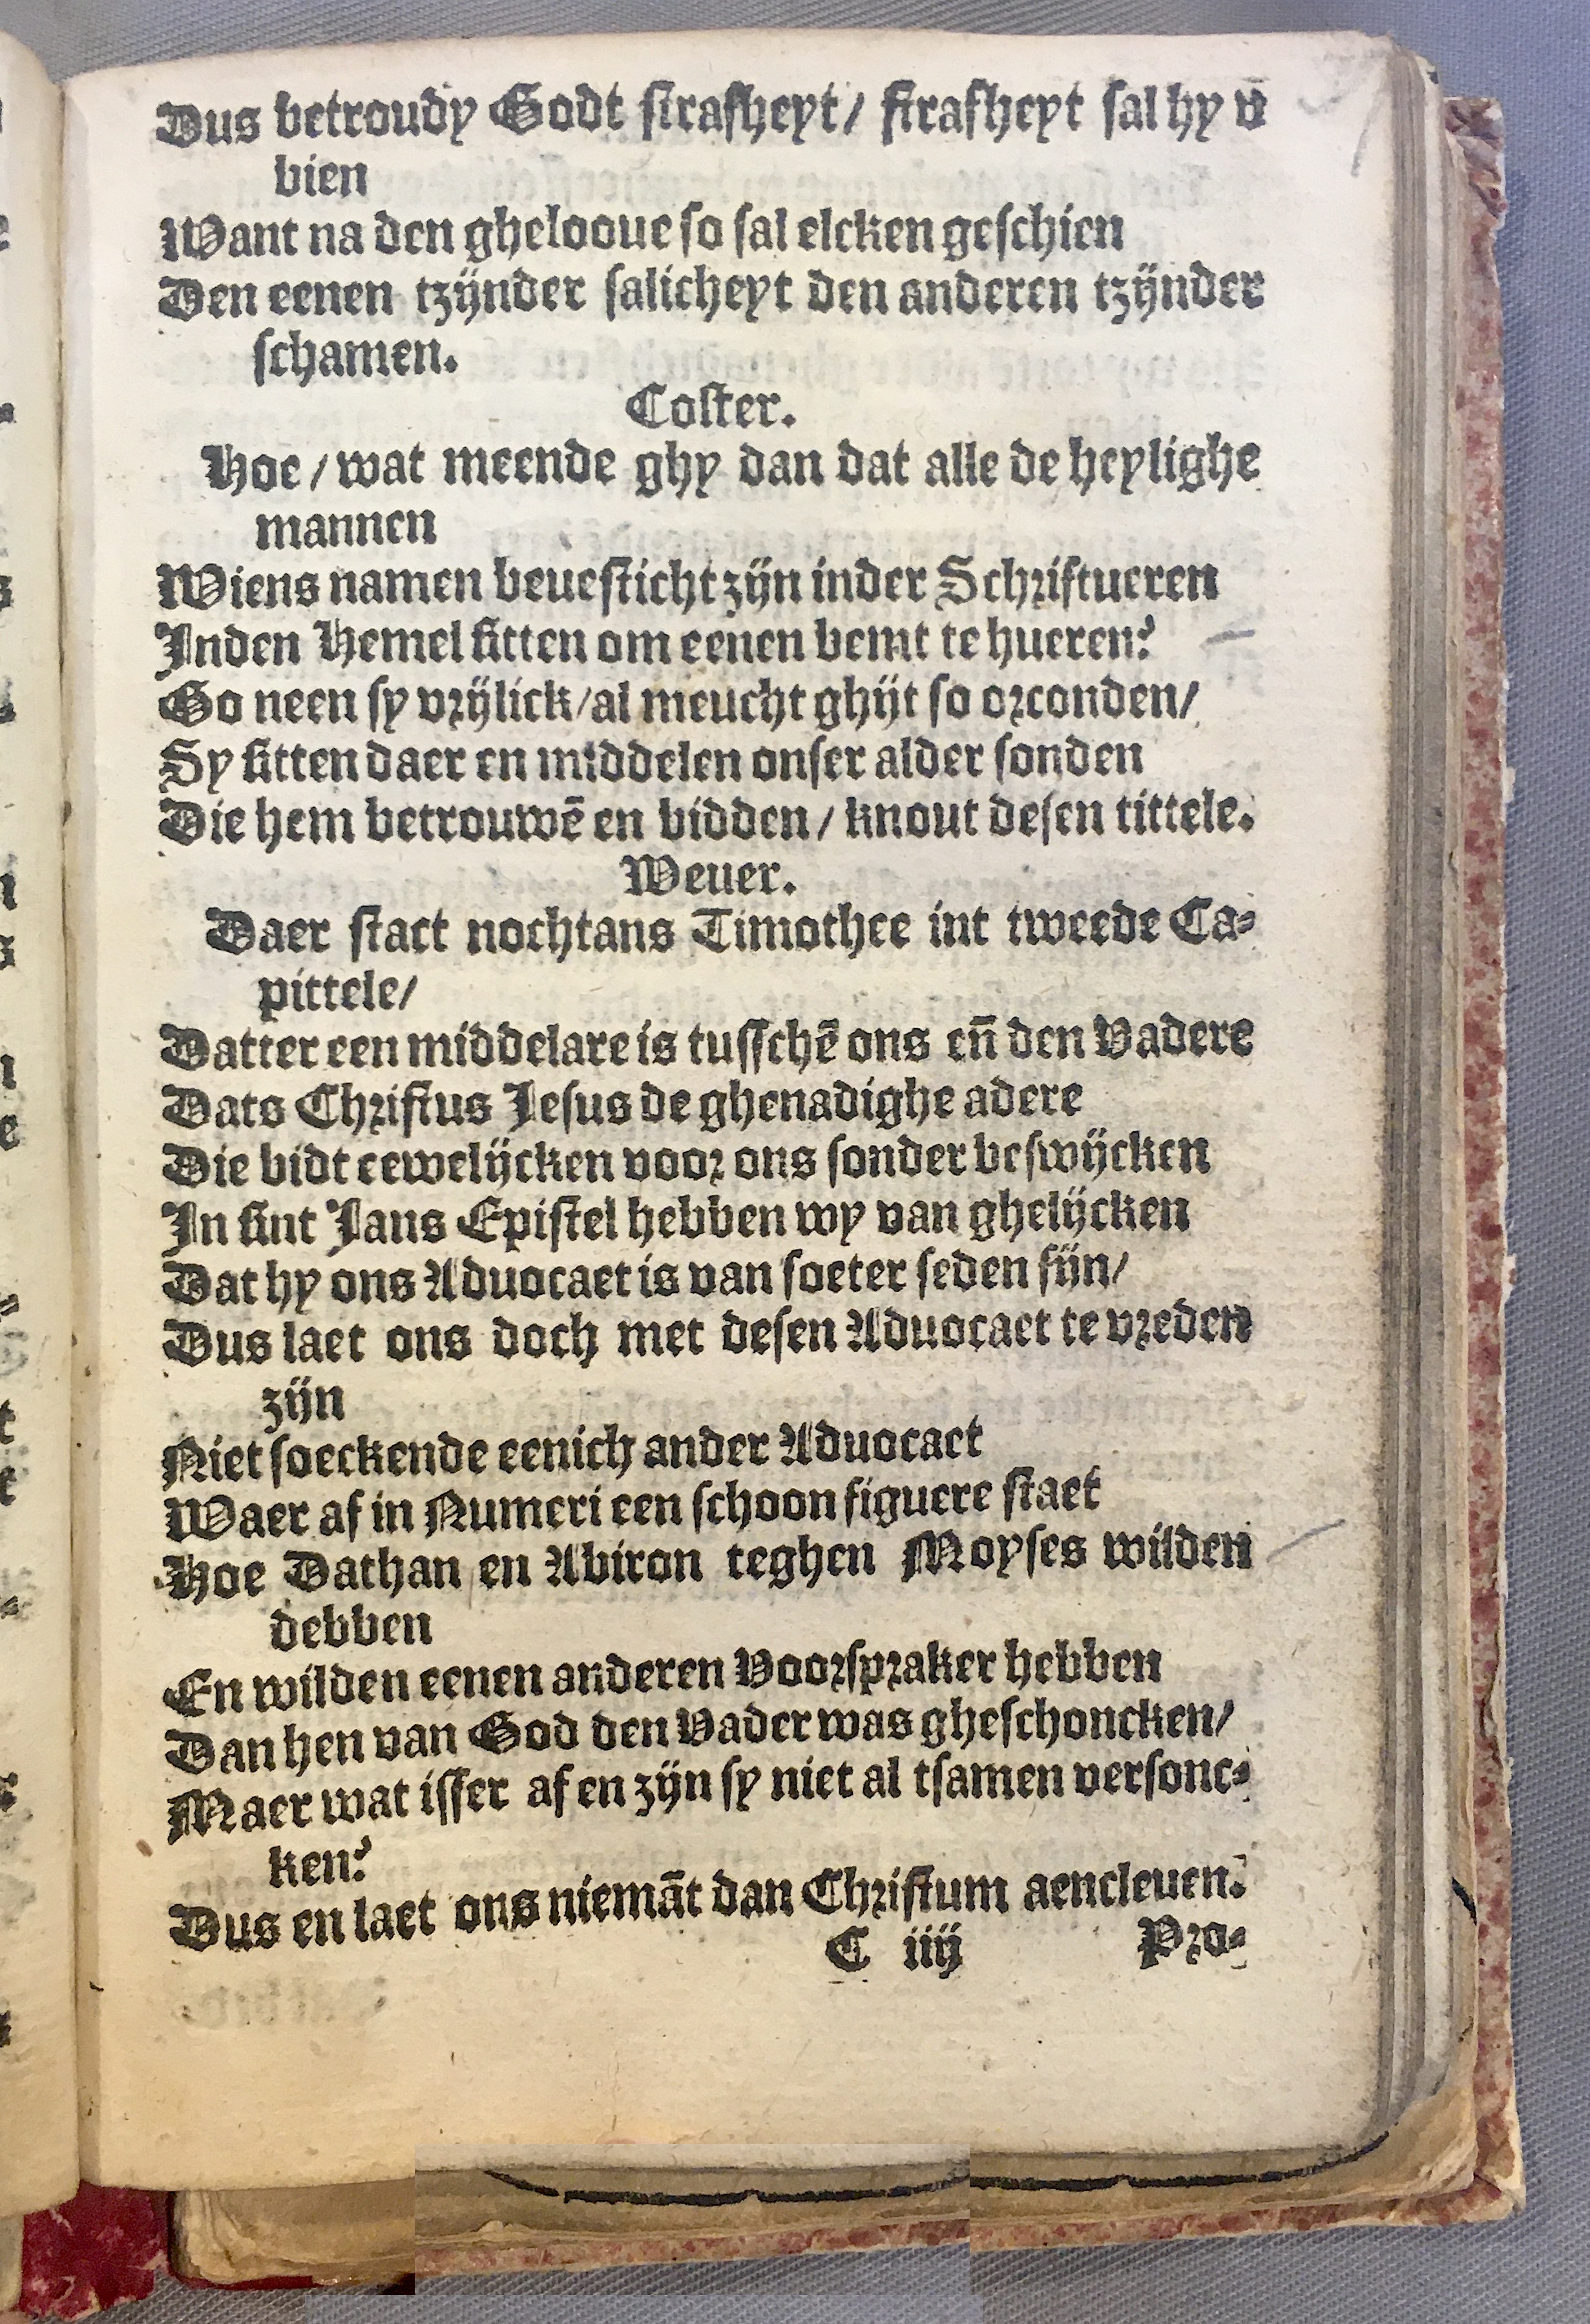 Dus betroudy Godt strafheyt/ strafheyt sal hy v̄
bien
Want na den ghelooue so sal elcken geschien
Den eenen tzijnder salicheyt den anderen tzijnder
schamen.
Coster.
Hoe/ wat meende ghy dan dat alle de heylighe
mannen
Wiens namen beuesticht zijn inder Schriftueren
Inden Hemel sitten om eenen bemt te hueren?
Go neen sy vrijlick/ al meucht ghijt so orconden/
Sy sitten daer en middelen onser alder sonden
Die hem betrouwē en bidden/ knout desen tittele.
Weuer.
Daer staet nochtans Timothee int tweede Ca-
pittele/
Datter een middelare is tusschē ons en̄ den Vadere
Dats Christus Jesus de ghenadighe adere
Die bidt eewelijcken voor ons sonder beswijcken
In sint Jans Epistel hebben wy van ghelijcken
Dat hy ons Aduocaet is van soeter seden fijn/
Dus laet ons doch met desen Aduocaet te vreden
zijn
Niet soeckende eenich ander Aduocaet
Waer af in Numeri een schoon figuere staet
Hoe Dathan en Abiron teghen Moyses wilden
debben
En wilden eenen anderen Voorspraker hebben
Dan hen van God den Vader was gheschoncken/
Maer wat isser af en zijn sy niet al tsamen versonc-
ken?
Dus en laet ons niemāt dan Christum aencleuen.
C iiij Pro-